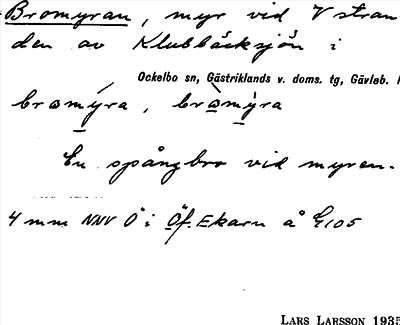 Bromyran, myr vid V stran
den av Klubbäcksjön i
Ockelbo sn, Gästriklands v. doms. tg, Gävleb. l
bromýra, bròmỳra
En spångbro vid myren.
4 mm NNV Ö i Öf. Ekarn å G105
LARS LARSSON 1935